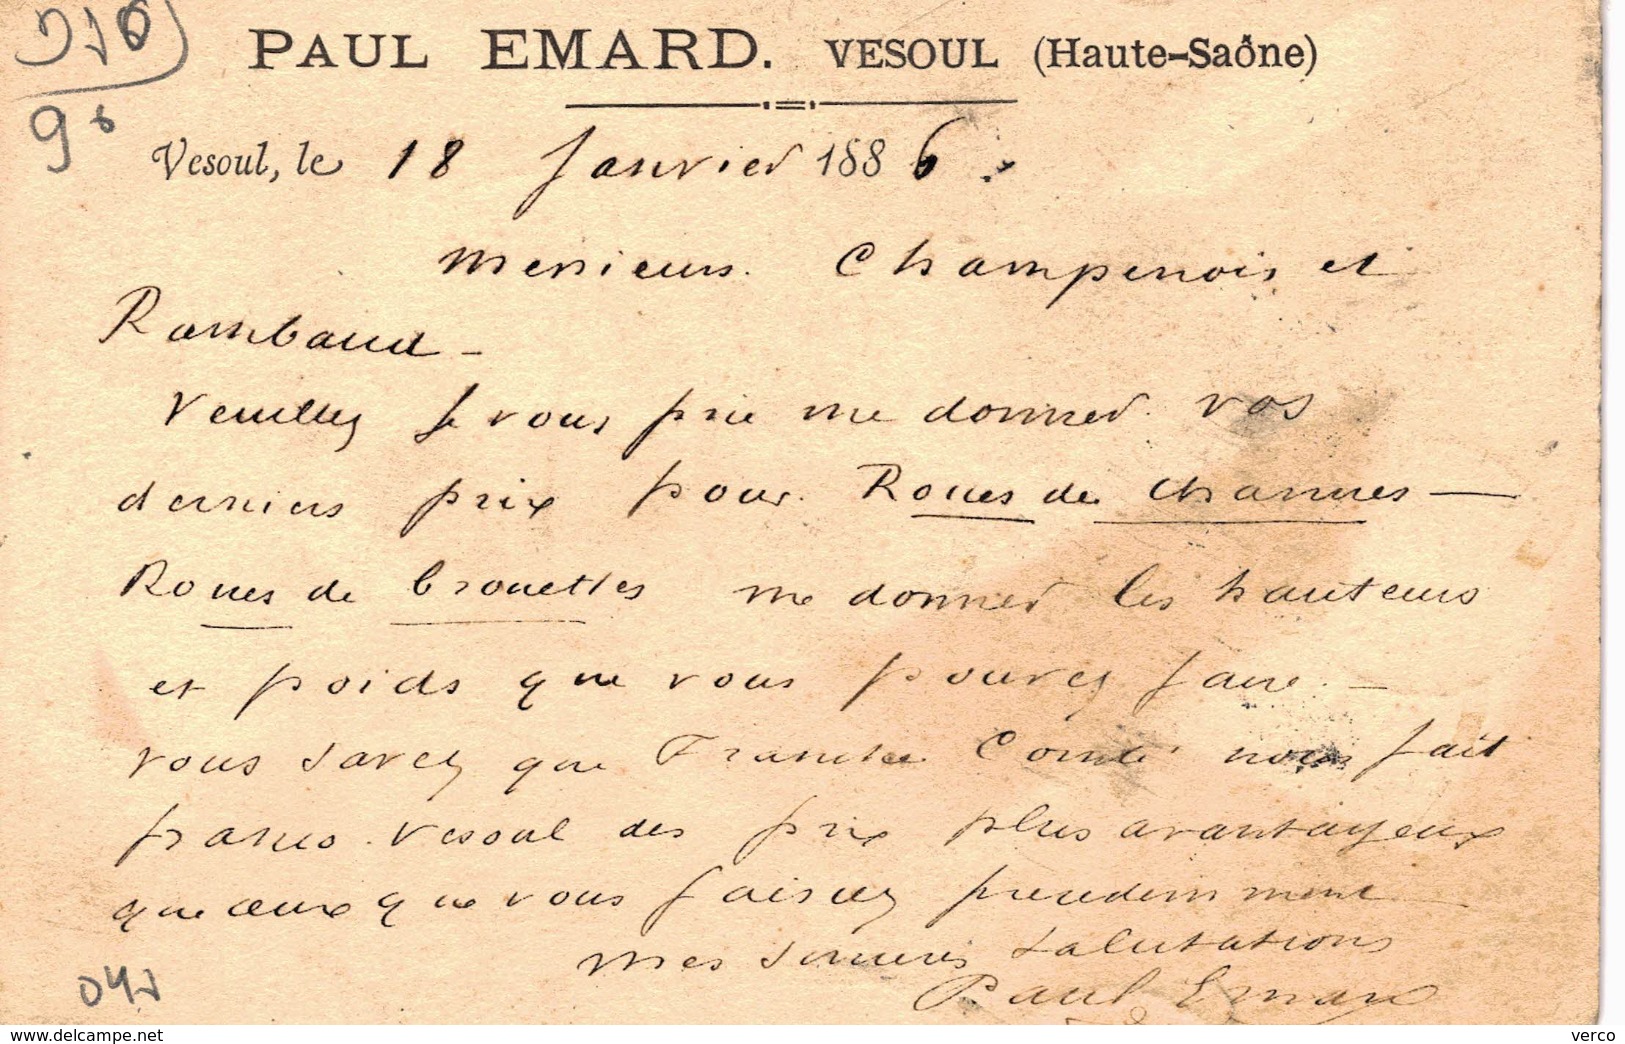 970
9 8
PAUL EMARD. VESOUL (Haute-Saône)
Vesoul, le 18 Janvier 1886.
Messieurs. Champenois et
Rambaud -
Veuillez Je vous prie me donner vos
derniers prix pour Roues de charrues —
Roues de brouettes me donner les hauteurs
et poids que vous pouvez faire. —
vous savez que Franche Comté nous fait
franco Vesoul des prix plus avantageux
que ceux que vous faisiez précédemment
mes sincères salutations
Paul Emard
delcampe.net
verco